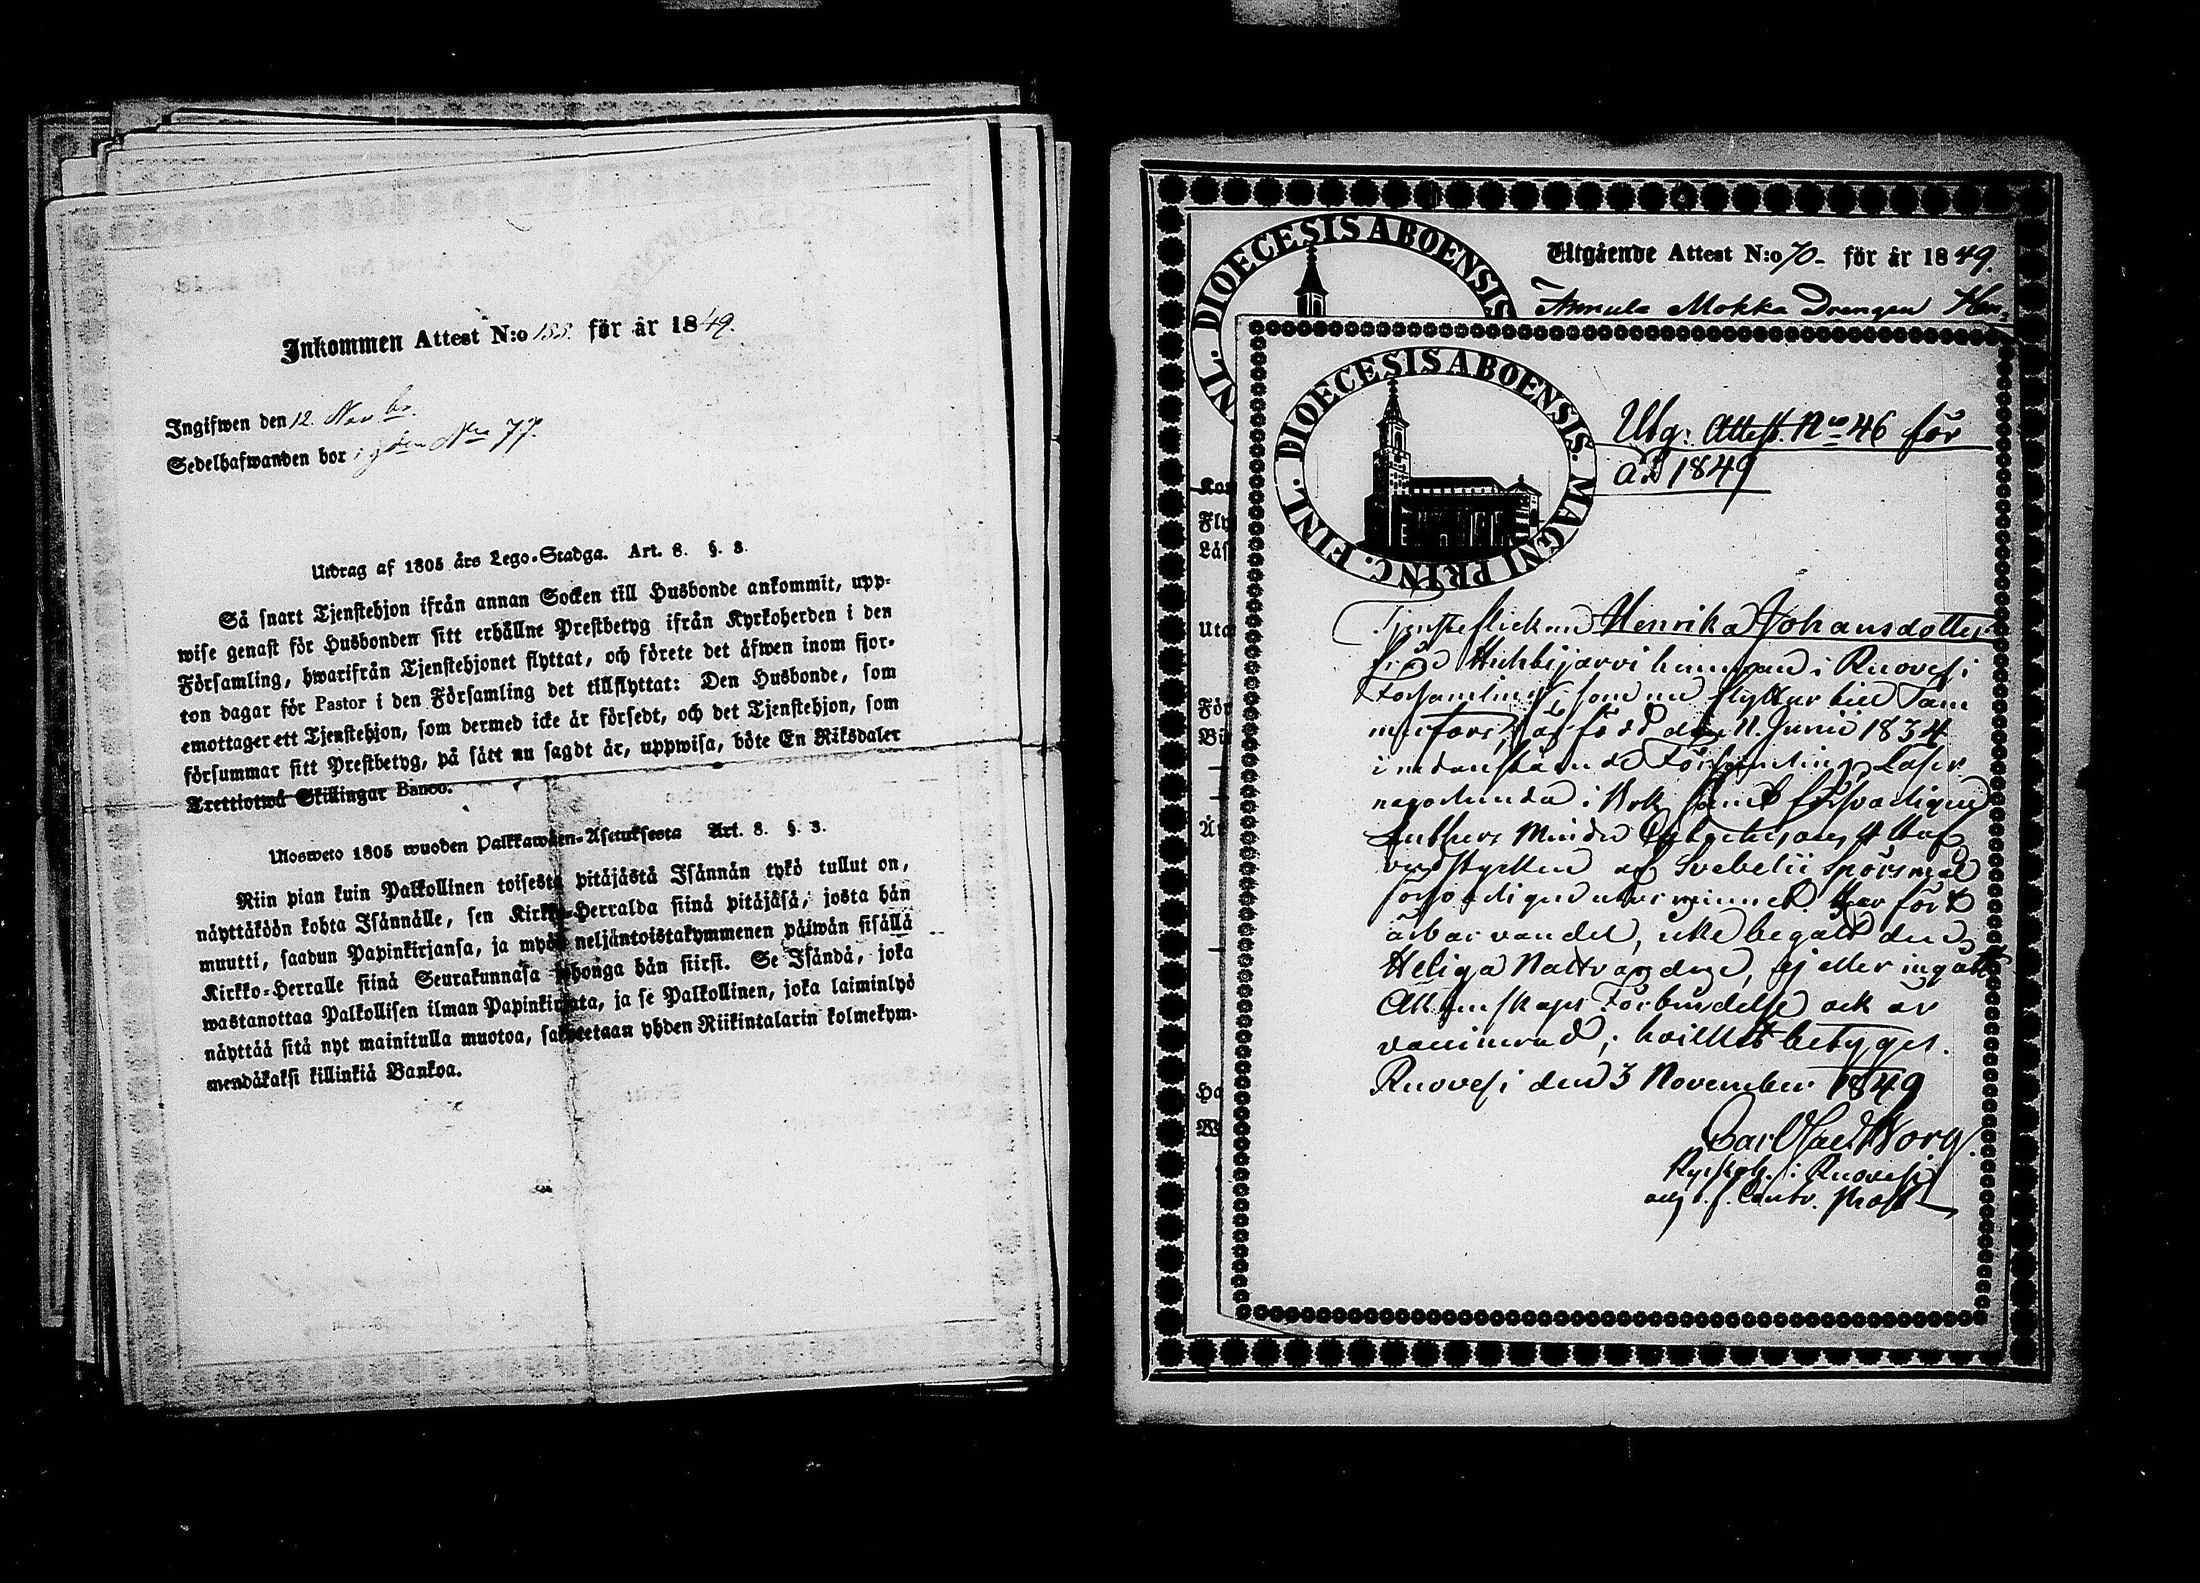 Inkommen Attest N:o 133. för år 1849.
Ingifwen den 12. Novbr.
Sedelhafwanden bor i gden Nro 77.
Utdrag af 1805 års Lego-Stadga. Art. 8. §. 3.
Så snart Tjenstehjon ifrån annan Socken till Husbonde ankommit, upp-
wise genast för Husbonden sitt erhållne Prestbetyg ifrån Kyrkoherden i den
Församling, hwarifrån Tjenstehjonet flyttat, och förete det äfwen inom fjor-
ton dagar för Pastor i den Församling det tillflyttat: Den Husbonde, som
emottager ett Tjenstehjon, som dermed icke är försedt, och det Tjenstehjon, som
försummar sitt Prestbetyg, på sätt nu sagdt är, uppwisa, böte En Riksdaler
Trettiotwå Skillingar Banco.
Ulosweto 1805 wuoden Palkkawäen-Asetuksesta Art. 8. §. 3.
Niin pian kuin Palkollinen toisesta pitäjästä Isännän tykö tullut on,
näyttäköön kohta Isännälle, sen Kirkko-Herralda siinä pitäjäsä, josta hän
muutti, saadun Papinkirjansa, ja myös neljäntoistakymmenen päiwän sisällä
Kirkko-Herralle siinä Seurakunnasa johonga hän siirsi. Se Isändä, joka
wastanottaa Palkollisen ilman Papinkirjata, ja se Palkollinen, joka laiminlyö
näyttää sitä nyt mainitulla muotoa, sakoitetaan yhden Riikintalarin kolmekym-
mendäkaksi killinkiä Bankoa.
DIOECESIS ABOENSIS
NL.
Utgående Attest N:o 70- för år 1849.
Mokka Drengen
Kon
Fly
Läs
Uta
För
Ha
W
DIOECESIS ABOENSIS. MAGNI PRINC. FINL.
Utg: Attest. Nro 46 för
a. 1849
Tjensteflickan Henrika Johansdotter
från hemman i Ruovesi
Församling, som nu flyttar till Tam
merfors, är född den 11 Junii 1834
i nedanstående Församling, Läser
i Bok samt försvarligen
Luthers Mindre Cateches
stycken af Svebelii Spörsmål
försvarligen utur minnet. Har fört
ärbar vandel, icke begått den
Heliga Nattvarden, ej eller ingått
Äktenskaps Förbindelse och är
vaccinerad; hvilket betyges.
Ruovesi den 3 November 1849
Carl Borg.
Kyrkoh. i Ruovesi
Contr. Prost